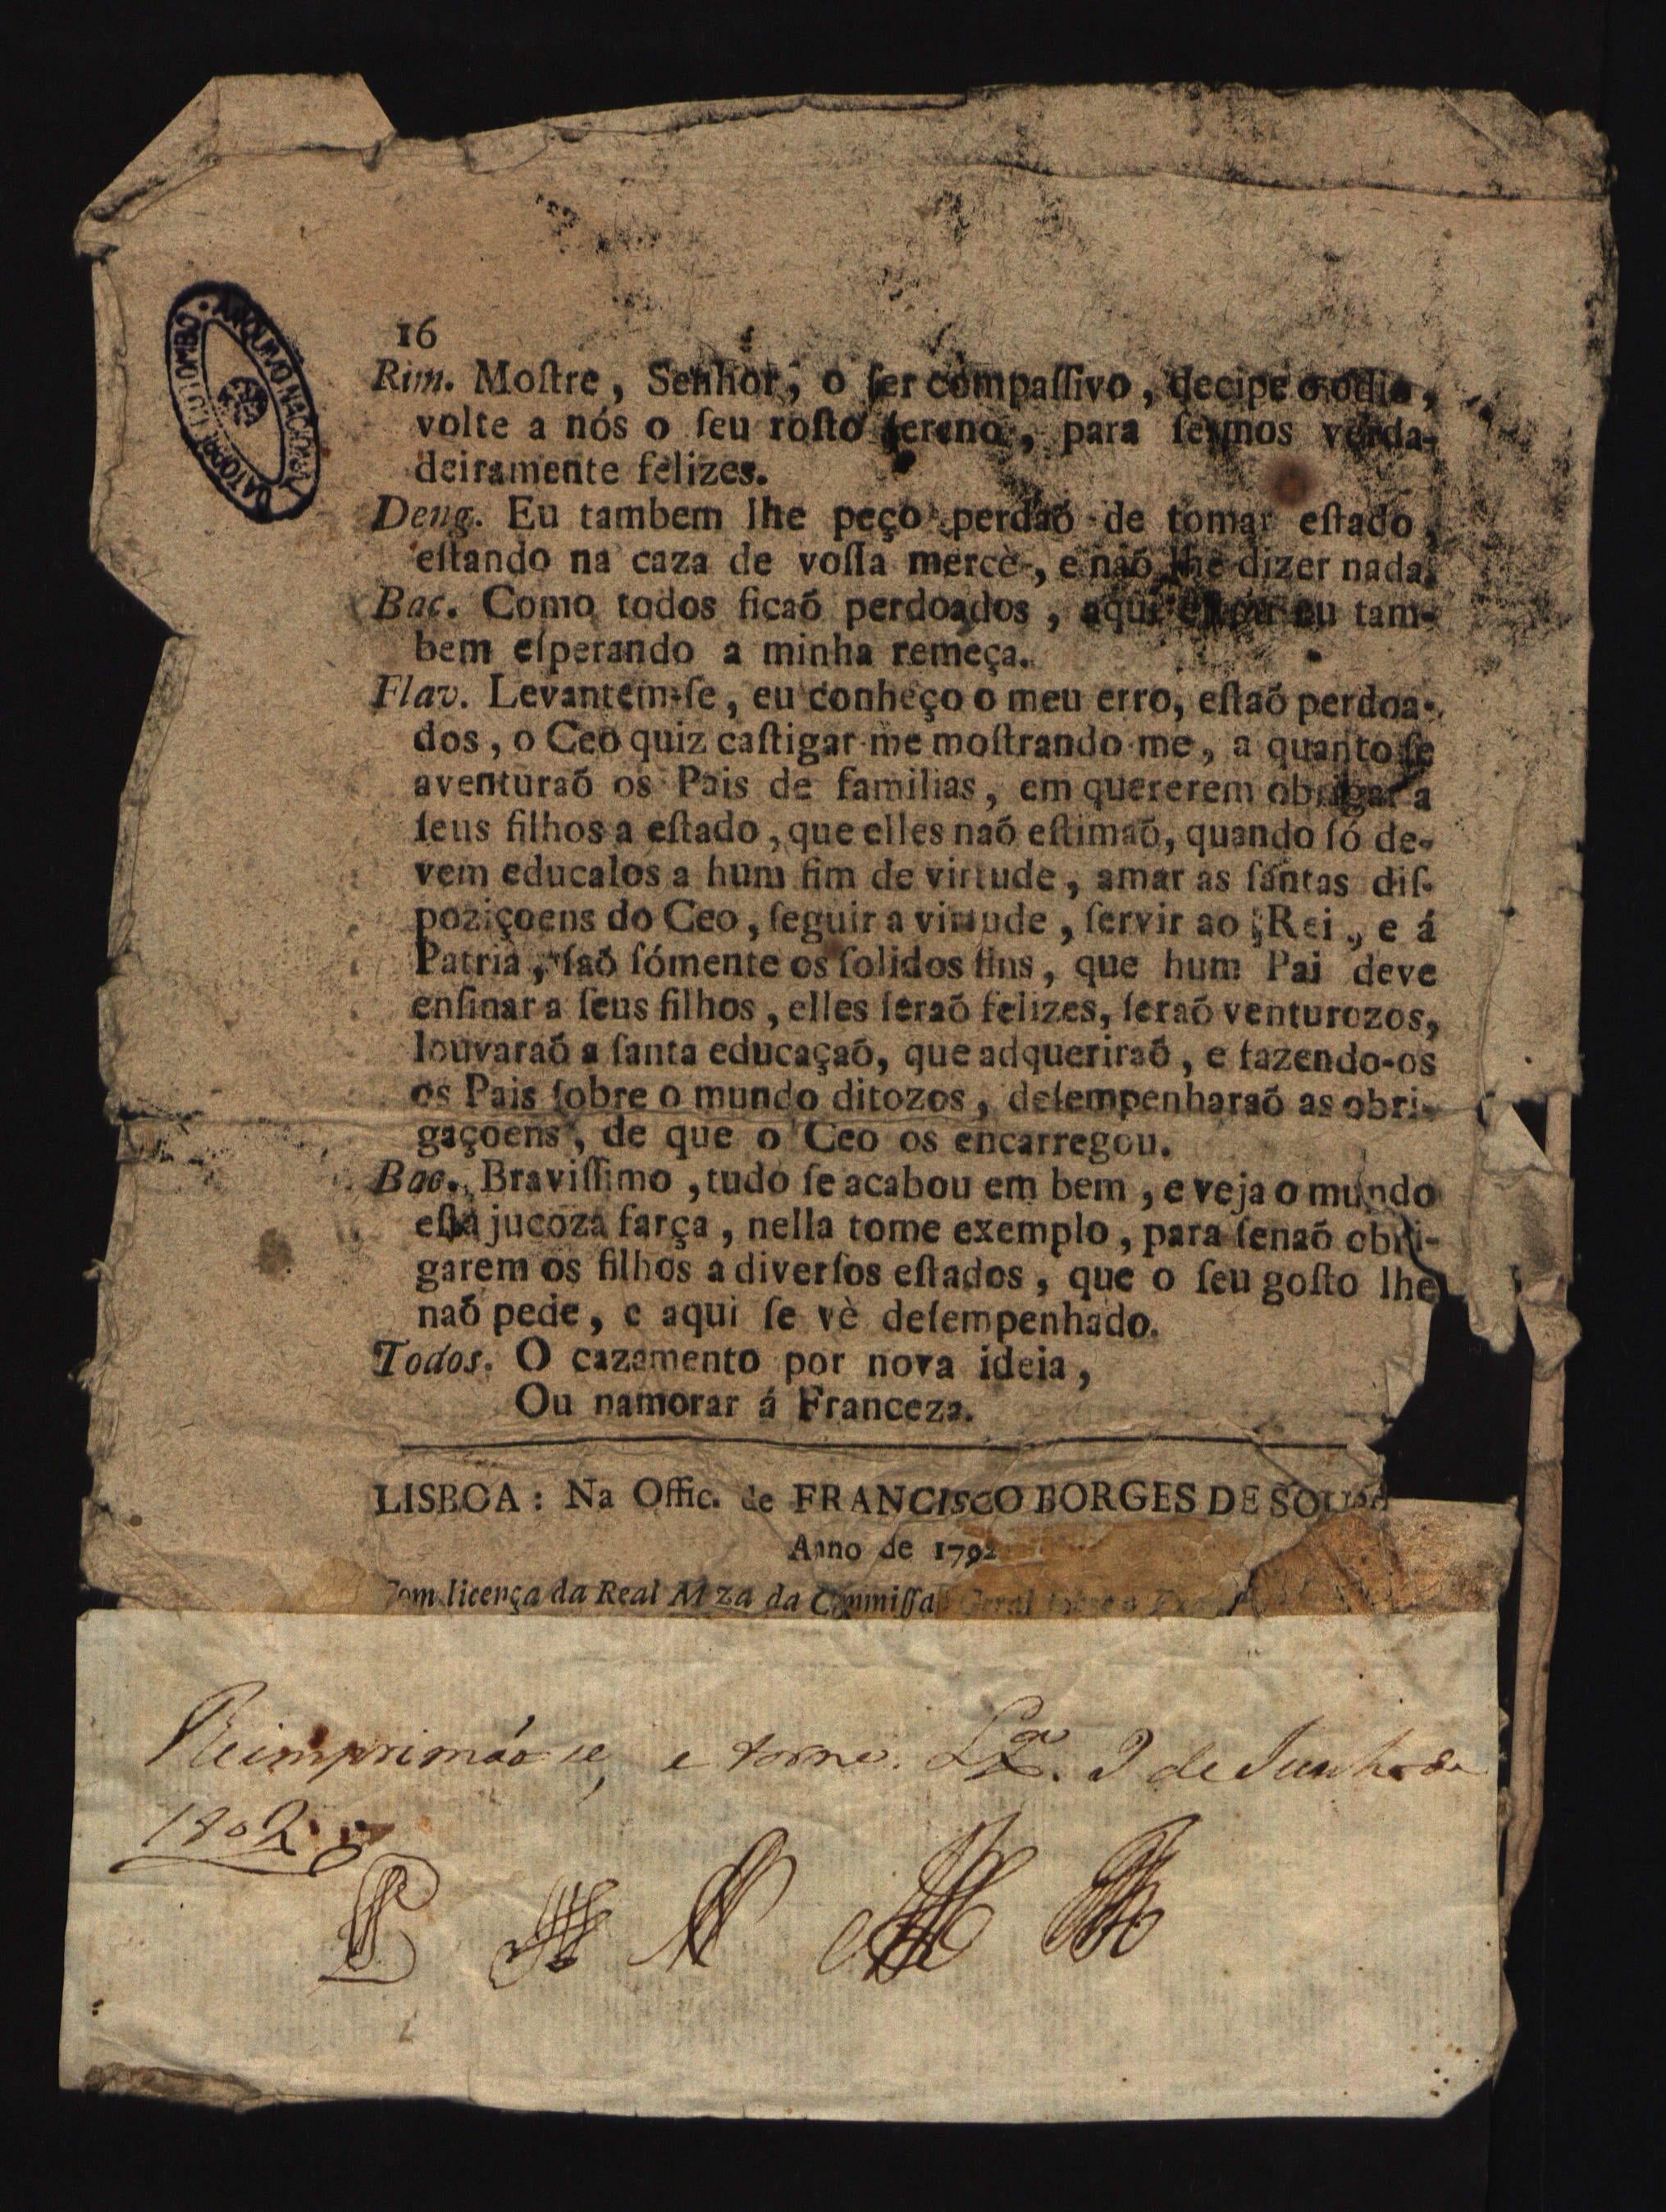 ARQUIVO NACIONAL DA TORRE DO TOMBO
16
Rim. Moſtre, Senhor, o ſer compaſſivo, decipe o odio,
volte a nós o ſeu roſto ſereno, para ſermos verda-
deiramente felizes.
Deng. Eu tambem lhe peço perdaõ de tomar eſtado,
eſtando na caza de voſſa mercè, e naõ lhe dizer nada.
Bac. Como todos ficaõ perdoados, aqui eſtou eu tam-
bem eſperando a minha remeça.
Flav. Levantem-ſe, eu conheço o meu erro, eſtaõ perdoa-
dos, o Ceo quiz caſtigar-me moſtrando-me, a quanto ſe
aventuraõ os Pais de familias, em quererem obrigar a
ſeus filhos a eſtado, que elles naõ eſtimaõ, quando ſó de-
vem educalos a hum fim de virtude, amar as ſántas diſ-
poziçoens do Ceo, ſeguir a virtude, ſervir ao Rei, e á
Patria, ſaõ ſómente os ſolidos fins, que hum Pai deve
enſinar a ſeus filhos, elles ſeraõ felizes, ſeraõ venturozos,
louvaraõ a ſanta educaçaõ, que adqueriraõ, e fazendo-os
os Pais ſobre o mundo ditozos, deſempenharaõ as obri-
gaçoens, de que o Ceo os encarregou.
Bac. Braviſſimo, tudo ſe acabou em bem, e veja o mundo
eſta jucoza farça, nella tome exemplo, para ſenaõ obri-
garem os filhos a diverſos eſtados, que o ſeu goſto lhe
naõ pede, e aqui ſe vè deſempenhado.
Todos. O cazamento por nova ideia,
Ou namorar á Franceza.
LISBOA: Na Offic. de FRANCISCO BORGES DE SOUSA
Anno de 1792
Com licença da Real Meza da Commiſſaõ Geral
Reimprimáo se, e torne. Lxa. 9 de Junho de
1802